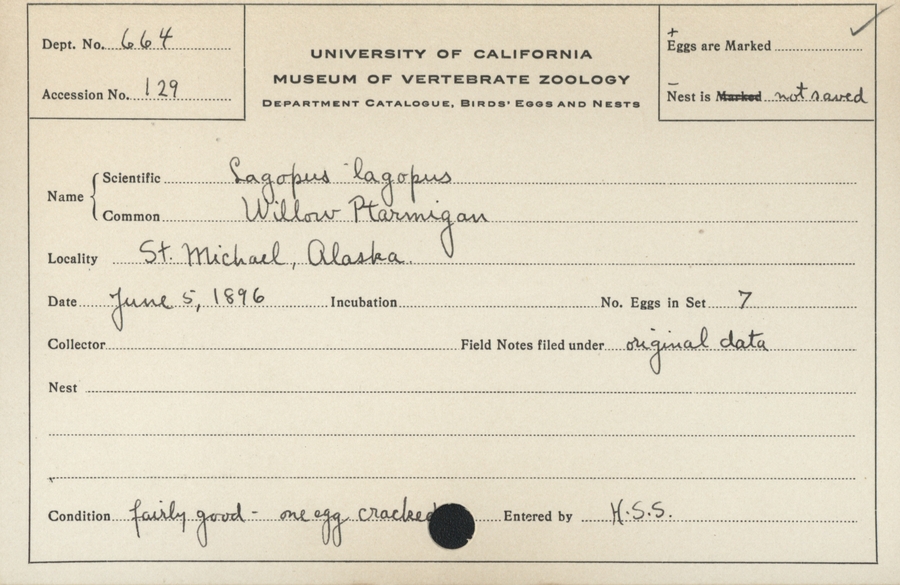 Dept. No. 664
Accession No. 129
UNIVERSITY OF CALIFORNIA
MUSEUM OF VERTEBRATE ZOOLOGY
DEPARTMENT CATALOGUE, BIRDS' EGGS AND NESTS
+
Eggs are Marked ✓
–
Nest is Marked not saved
Name
Scientific Lagopus lagopus
Common Willow Ptarmigan
Locality St. Michael, Alaska.
Date June 5, 1896 Incubation No. Eggs in Set 7
Collector Field Notes filed under original data
Nest
Condition fairly good - one egg cracked Entered by H.S.S.